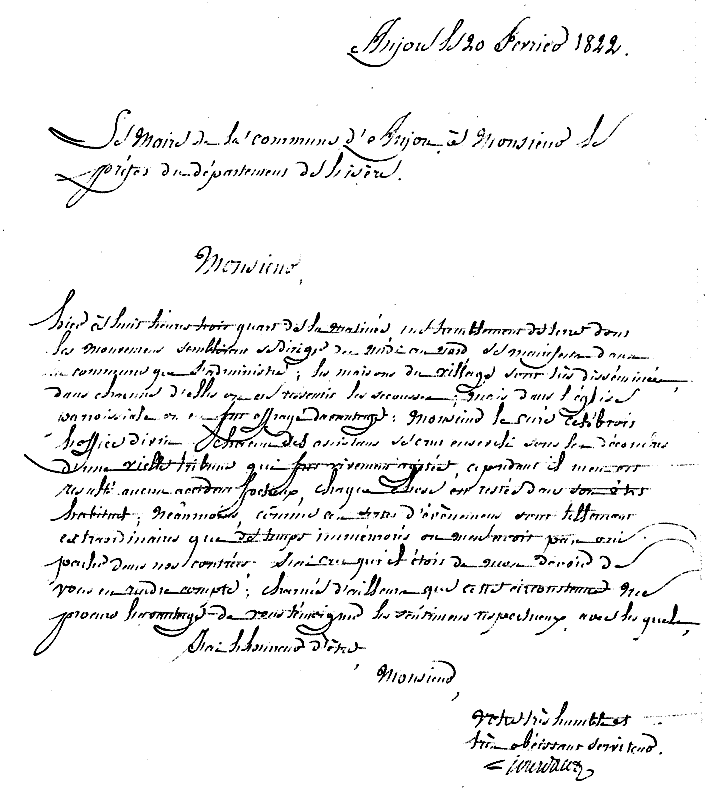 Anjou le 20 Fevrier 1822.
Le Maire de la commune d'Anjou, à Monsieur le
préfet du département de l'isère.
Monsieur,
hier à huit heures trois quart de la matinée un tremblement de terre dont
les mouvemens sembloient se diriger du midi au nord s'est manifesté dans
la commune que j'administre; les maisons du village sont très disséminées,
dans chacune d'elles on en ressentit les secousses; mais dans l'église
paroissiale on en fut effrayé davantage; Monsieur le curé célébroit
l'office divin chacun des assistans se crut enseveli sous les décombres
d'une vieille tribune qui fut vivement agitée, cependant il n'en est
resulté aucun accident facheux, chaque chose en restée dans son état
habituel; néanmoins comme ces sortes d'évènemens sont tellement
extraordinaires que de temps immémorial on n'en avoit pas ouï
parler dans nos contrées j'ai cru qu'il étoit de mon devoir de
vous en rendre compte; charmé d'ailleurs que cette circonstance me
procure l'avantage de vous témoigner les sentimens respectueux avec lesquels,
j'ai l'honneur d'être,
Monsieur,
Votre très humble et
très obéissant serviteur.